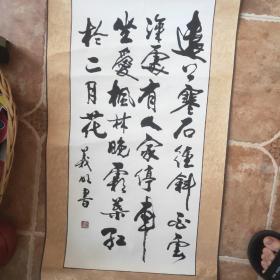 遠上寒石徑斜白雲
深處有人家停車
坐愛楓林晚霜葉紅
於二月花
書